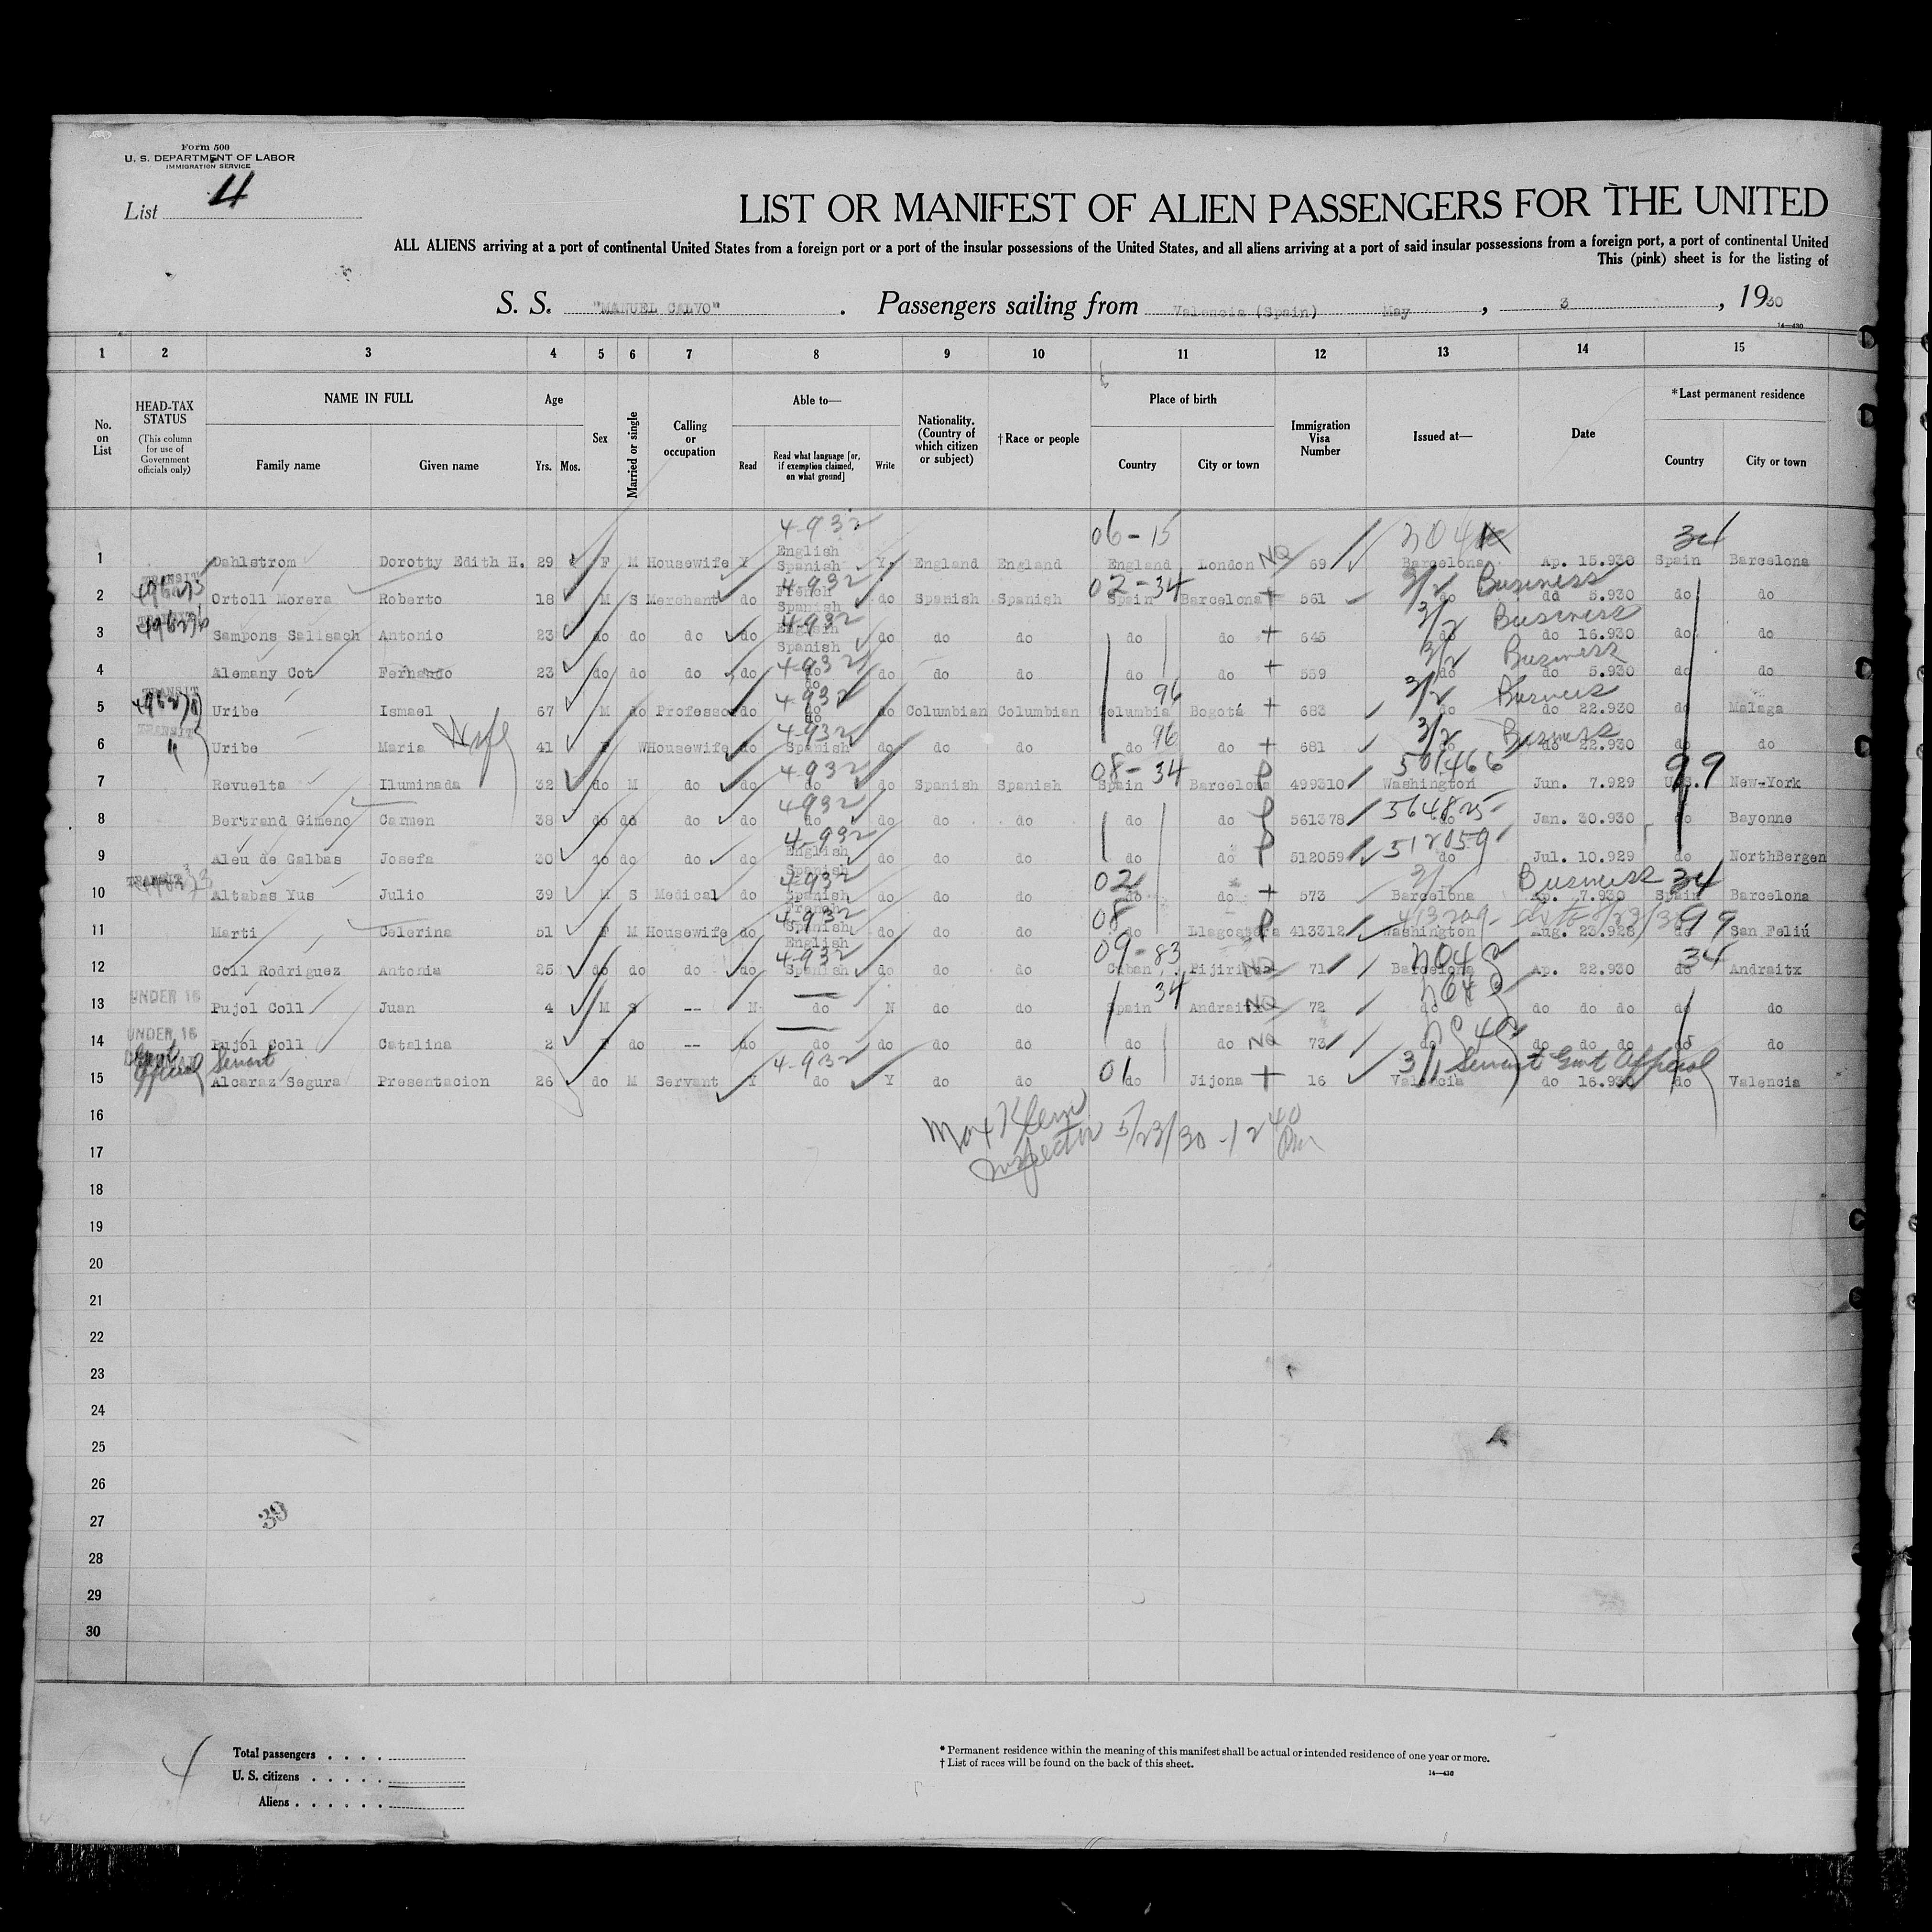 Form 500
U. S. DEPARTMENT OF LABOR
IMMIGRATION SERVICE
List 4
LIST OR MANIFEST OF ALIEN PASSENGERS FOR THE UNITED
ALL ALIENS arriving at a port of continental United States from a foreign port or a port of the insular possessions of the United States, and all aliens arriving at a port of said insular possessions from a foreign port, a port of continental United
This (pink) sheet is for the listing of
S. S. "MANUEL CALVO". Passengers sailing from Valencia (Spain) May, 3, 1930
14—430
1 2 3 4 5 6 7 8 9 10 11 12 13 14 15
No. on List HEAD-TAX STATUS (This column for use of Government officials only) NAME IN FULL Family name Given name Age Yrs. Mos. Sex Married or single Calling or occupation Able to— Read Read what language [or, if exemption claimed, on what ground] Write Nationality. (Country of which citizen or subject) †Race or people Place of birth Country City or town Immigration Visa Number Issued at— Date *Last permanent residence Country City or town
4-932 06-15 34
1 Dahlstrom Dorotty Edith H. 29 F M Housewife Y English Spanish Y England England England London NQ 69 Barcelona Ap. 15.930 Spain Barcelona
TRANSIT 4-932 02-34 3/2 Business
2 Ortoll Morera Roberto 18 M S Merchant do French Spanish do Spanish Spanish Spain Barcelona 561 do do 5.930 do do
TRANSIT 4-932 3/2 Business
3 Sampons Salisach Antonio 23 do do do do English Spanish do do do do do 645 do do 16.930 do do
4-932 3/2 Business
4 Alemany Cot Fernando 23 do do do do do do do do do do do 559 do do 5.930 do do
TRANSIT 4-932 96 3/2 Business
5 Uribe Ismael 67 M do Professor do do do do Columbian Columbian Columbia Bogotá 683 do do 22.930 do Malaga
TRANSIT Wife 4-932 96 3/2 Business
6 Uribe Maria 41 F W Housewife do Spanish do do do do do 681 do do 22.930 do do
4-932 08-34 501466 99
7 Revuelta Iluminada 32 do M do do do do Spanish Spanish Spain Barcelona 499310 Washington Jun. 7.929 U.S. New-York
4-932 564825
8 Bertrand Gimeno Carmen 38 do do do do do do do do do do 561378 do Jan. 30.930 do Bayonne
4-932 512059
9 Aleu de Galbas Josefa 30 do do do do English Spanish do do do do do 512059 do Jul. 10.929 do NorthBergen
TRANSIT 4-932 02 Business 34
10 Altabas Yus Julio 39 M S Medical do Spanish French do do do do do 573 Barcelona Ap. 7.930 Spain Barcelona
4-932 08 99
11 Marti Celerina 51 F M Housewife do Spanish English do do do do Llagostera 413312 Washington Aug. 23.928 do San Feliú
4-932 09-83 34
12 Coll Rodriguez Antonia 25 do do do do Spanish do do do Cuban 71 Barcelona Ap. 22.930 do Andraitx
UNDER 16 34
13 Pujol Coll Juan 4 M S -- N do N do do Spain Andraitx NQ 72 do do do do do do
UNDER 16
14 Pujol Coll Catalina 2 F do -- do do do do do do do NQ 73 do do do do do do
Govt Official Servant 4-932 01 3/1 Servant Govt Official
15 Alcaraz Segura Presentacion 26 do M Servant Y do Y do do do Jijona 16 Valencia do 16.930 do Valencia
16
Max Klein 5/23/30 - 12 40 Pm
Inspector
17
18
19
20
21
22
23
24
25
26
27
39
28
29
30
Total passengers . . . .
U. S. citizens . . . . .
Aliens . . . . . .
* Permanent residence within the meaning of this manifest shall be actual or intended residence of one year or more.
† List of races will be found on the back of this sheet.
14—430